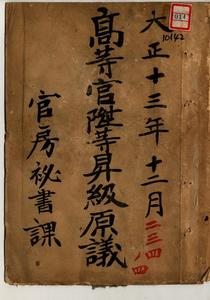 大正十三年十二月
二三、四
ノ四
高等官陞等昇級原議
官房秘書課
10142